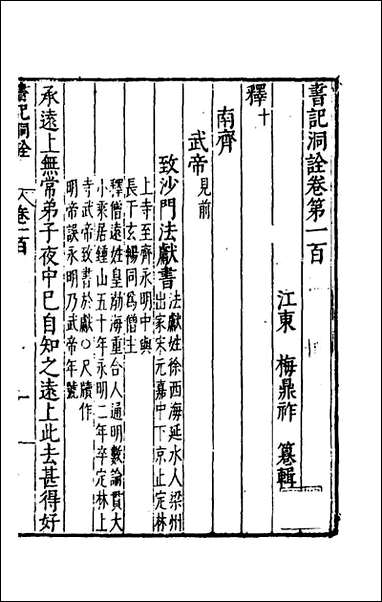 書記洞詮卷第一百
江東 梅鼎祚 纂輯
釋十
南齊
武帝見前
致沙門法獻書法獻姓徐西海延水人梁州
出家宋元嘉中下京止定林
上寺至齊永明中與
長干玄暢同爲僧主
釋僧遠姓皇渤海重合人通明數論貫大
小乘居鍾山五十年永明二年卒定林上
寺武帝致書於獻○尺牘作
明帝誤永明乃武帝年號
承遠上無常弟子夜中巳自知之遠上此去甚得好
書記洞詮 卷一百 一